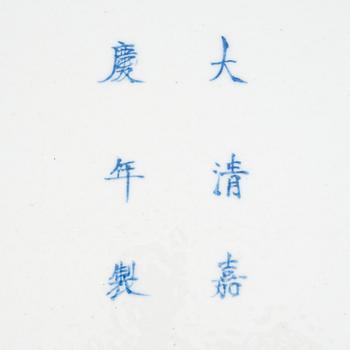 大清嘉
慶年製